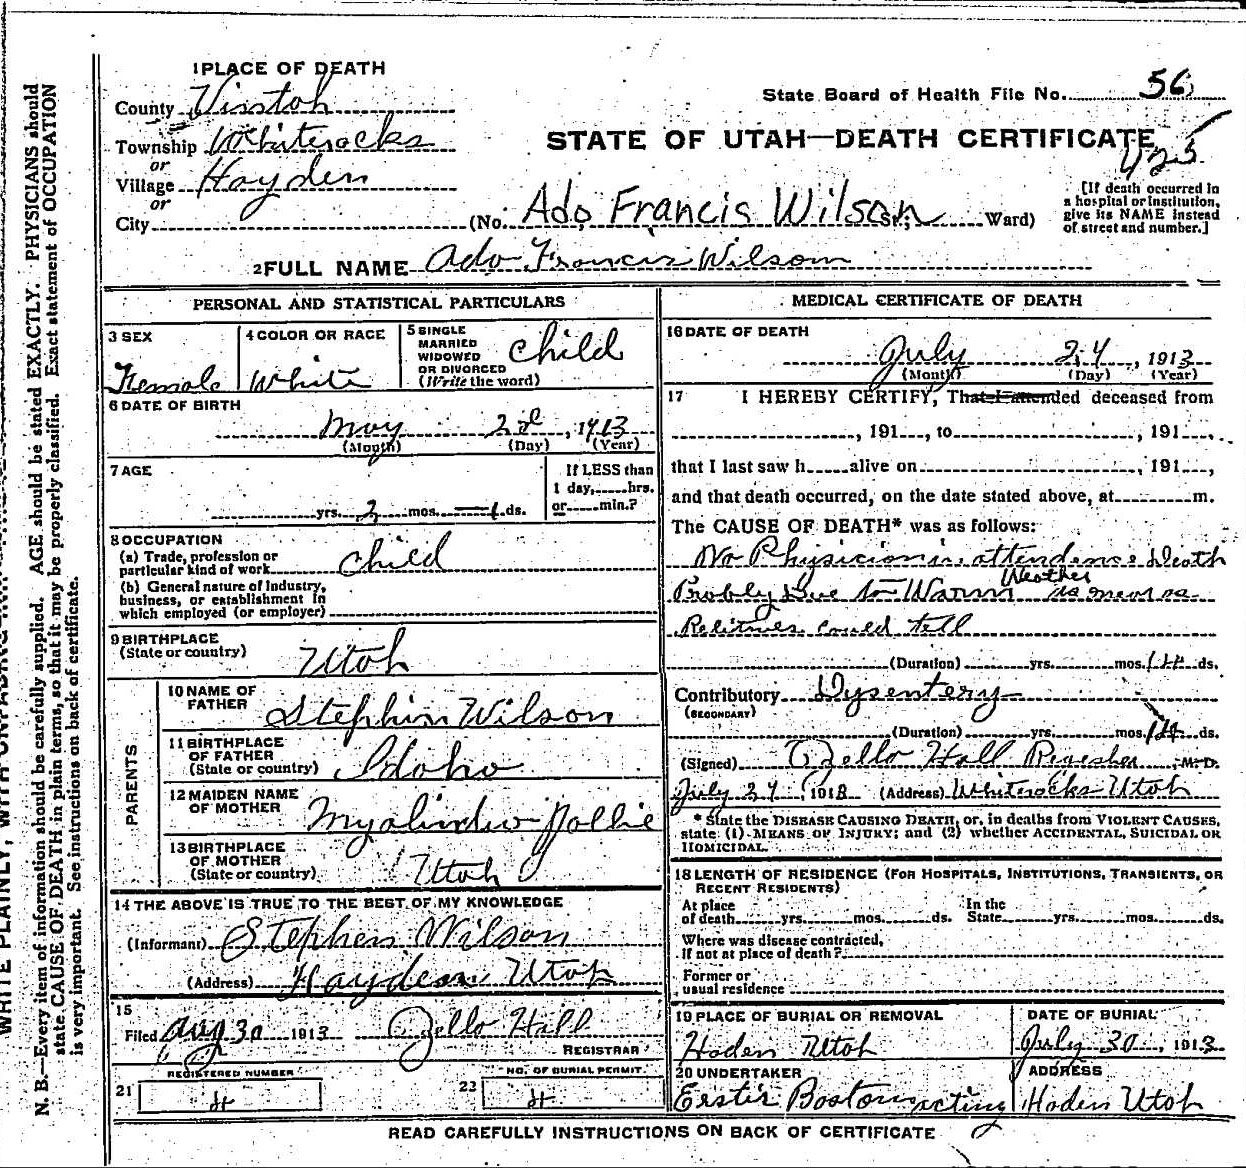 1 PLACE OF DEATH
County Uintah
Township Whiterocks
or
Village Hayden
or
City
State Board of Health File No. 56
STATE OF UTAH—DEATH CERTIFICATE
425
[If death occurred in
a hospital or institution,
give its NAME instead
of street and number.]
(No. Ado Francis Wilson St.; Ward)
2 FULL NAME Ado Francis Wilson
PERSONAL AND STATISTICAL PARTICULARS
3 SEX
Female
4 COLOR OR RACE
White
5 SINGLE
MARRIED
WIDOWED
OR DIVORCED
(Write the word)
child
6 DATE OF BIRTH
May 2d, 1913
(Month) (Day) (Year)
7 AGE
yrs. 2 mos. ds.
If LESS than
1 day, hrs.
or min.?
8 OCCUPATION
(a) Trade, profession or
particular kind of work child
(b) General nature of Industry,
business, or establishment in
which employed (or employer)
9 BIRTHPLACE
(State or country) Utah
PARENTS
10 NAME OF
FATHER Stephin Wilson
11 BIRTHPLACE
OF FATHER
(State or country) Idaho
12 MAIDEN NAME
OF MOTHER
13 BIRTHPLACE
OF MOTHER
(State or country) Utah
14 THE ABOVE IS TRUE TO THE BEST OF MY KNOWLEDGE
(Informant) Stephen Wilson
(Address) Hayden Utah
15
Filed Aug 30 1913 Ozello Hall
REGISTRAR
REGISTERED NUMBER
21 4
NO. OF BURIAL PERMIT
22 4
MEDICAL CERTIFICATE OF DEATH
16 DATE OF DEATH
July 24, 1913
(Month) (Day) (Year)
17 I HEREBY CERTIFY, That I attended deceased from
, 191 , to , 191 ,
that I last saw h alive on , 191 ,
and that death occurred, on the date stated above, at m.
The CAUSE OF DEATH* was as follows:
No Physician in attendence Death
Probly Due to Warm Weather as near as
Relitives could tell
(Duration) yrs. mos. 14 ds.
Contributory Dysentery
(SECONDARY)
(Duration) yrs. mos. 14 ds.
(Signed) Ozello Hall M.D.
July 24, 1913 (Address) Whiterocks Utah
* State the DISEASE CAUSING DEATH, or, in deaths from VIOLENT CAUSES,
state (1) MEANS OF INJURY; and (2) whether ACCIDENTAL, SUICIDAL OR
HOMICIDAL.
18 LENGTH OF RESIDENCE (FOR HOSPITALS, INSTITUTIONS, TRANSIENTS, OR
RECENT RESIDENTS)
At place
of death yrs. mos. ds.
In the
State yrs. mos. ds.
Where was disease contracted,
if not at place of death?
Former or
usual residence
19 PLACE OF BURIAL OR REMOVAL
Haden Utah
DATE OF BURIAL
July 30, 1913
20 UNDERTAKER
Boston acting
ADDRESS
Haden Utah
READ CAREFULLY INSTRUCTIONS ON BACK OF CERTIFICATE
WRITE PLAINLY, WITH
N. B.—Every item of information should be carefully supplied. AGE should be stated EXACTLY. PHYSICIANS should
state CAUSE OF DEATH in plain terms, so that it may be properly classified. Exact statement of OCCUPATION
is very important. See instructions on back of certificate.